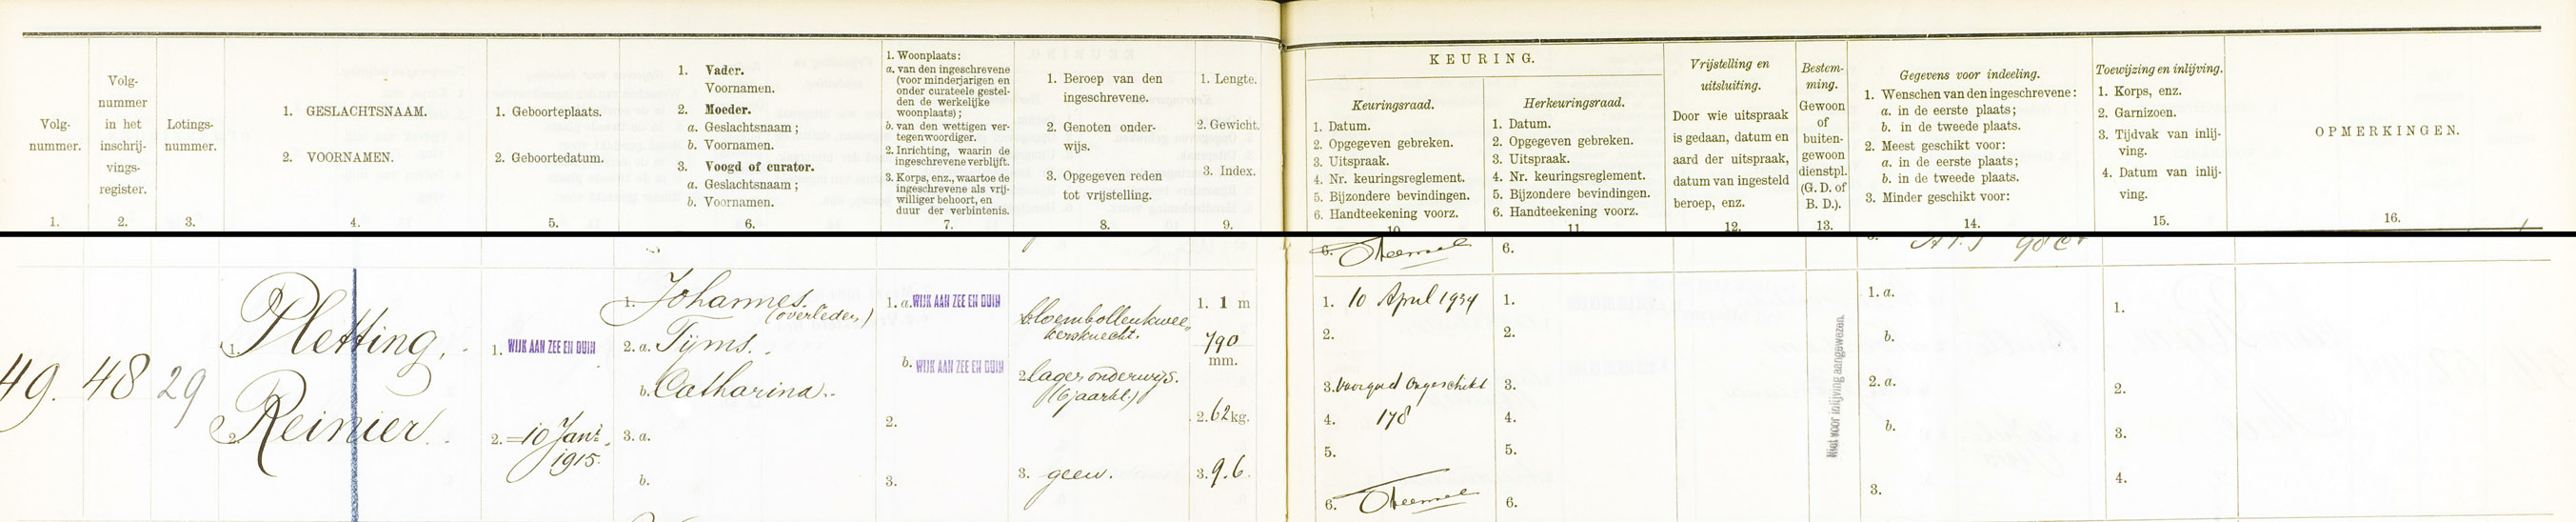 Volg-
nummer.
1.
Volg-
nummer
in het
inschrij-
vings-
register.
2.
Lotings-
nummer.
3.
1. GESLACHTSNAAM.
2. VOORNAMEN.
4.
1. Geboorteplaats.
2. Geboortedatum.
5.
1. Vader.
Voornamen.
2. Moeder.
a. Geslachtsnaam;
b. Voornamen.
3. Voogd of curator.
a. Geslachtsnaam;
b. Voornamen.
6.
1. Woonplaats:
a. van den ingeschrevene
(voor minderjarigen en
onder curateele gestel-
den de werkelijke
woonplaats);
b. van den wettigen ver-
tegenwoordiger.
2. Inrichting, waarin de
ingeschrevene verblijft.
3. Korps, enz., waartoe de
ingeschrevene als vrij-
williger behoort, en
duur der verbintenis.
7.
1. Beroep van den
ingeschrevene.
2. Genoten onder-
wijs.
3. Opgegeven reden
tot vrijstelling.
8.
1. Lengte.
2. Gewicht.
3. Index.
9.
KEURING.
Keuringsraad.
1. Datum.
2. Opgegeven gebreken.
3. Uitspraak.
4. Nr. keuringsreglement.
5. Bijzondere bevindingen.
6. Handteekening voorz.
10.
Herkeuringsraad.
1. Datum.
2. Opgegeven gebreken.
3. Uitspraak.
4. Nr. keuringsreglement.
5. Bijzondere bevindingen.
6. Handteekening voorz.
11.
Vrijstelling en
uitsluiting.
Door wie uitspraak
is gedaan, datum en
aard der uitspraak,
datum van ingesteld
beroep, enz.
12.
Bestem-
ming.
Gewoon
of
buiten-
gewoon
dienstpl.
(G. D. of
B. D.).
13.
Gegevens voor indeeling.
1. Wenschen van den ingeschrevene:
a. in de eerste plaats;
b. in de tweede plaats.
2. Meest geschikt voor:
a. in de eerste plaats;
b. in de tweede plaats.
3. Minder geschikt voor:
14.
Toewijzing en inlijving.
1. Korps, enz.
2. Garnizoen.
3. Tijdvak van inlij-
ving.
4. Datum van inlij-
ving.
15.
OPMERKINGEN.
16.
6.
6.
49.
48
29
1. Pletting.
2. Reinier.
1. WIJK AAN ZEE EN DUIN
2. =10 Jan!
1915.
1. Johannes.
(overleden)
2. a. Tijms.
b. Catharina.
3. a.
b.
1. a. WIJK AAN ZEE EN DUIN
b. WIJK AAN ZEE EN DUIN
2.
3.
1. bloembollenkwee-
kersknecht.
2. lager onderwijs.
(6 jaarkl.)
3. geen.
1. 1 m
790
mm.
2. 62 kg.
3. 9.6.
1. 10 April 1934
2.
3. Voorgoed Ongeschikt
4. 178
5.
6.
1.
2.
3.
4.
5.
6.
Niet voor inlijving aangewezen.
1. a.
b.
2. a.
b.
3.
1.
2.
3.
4.